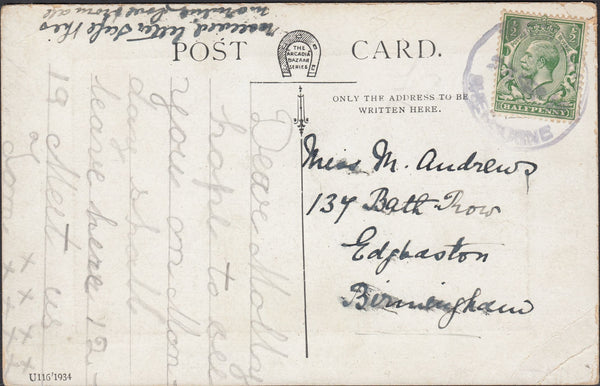 received letter safe this
morning love from all
POST CARD.
THE
ARCADIA
BAZAAR
SERIES
ONLY THE ADDRESS TO BE
WRITTEN HERE.
HALFPENNY
Miss M. Andrews
137 Bath Row
Edgbaston
Birmingham
Dear Molly
hope to see
you on Mon-
day shall
leave here 12-
19 Meet us
Love x x x x
x x x x
U116/1934